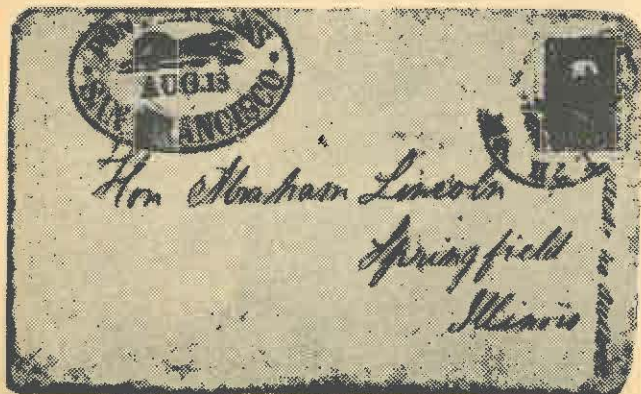 AUG. 13
SAN FRANCISCO
Hon Abraham Lincoln
Springfield
Illinois